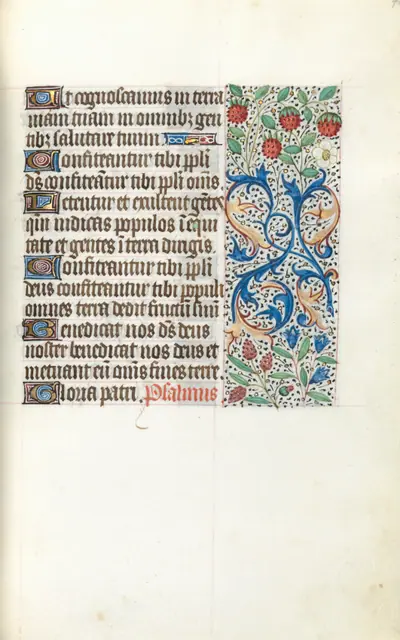 Ut cognoscamus in terra
uiam tuam in omnibꝫ gen
tibꝫ salutare tuum
Confiteantur tibi ppli
ds confiteãtur tibi ppli oms.
Letentur et exultent gẽtes
qm̃ iudicas populos ĩ equi
tate et gentes ĩ terra dirigis.
Confiteantur tibi ppli
deus confiteantur tibi populi
omnes terra dedit fructũ suũ
Benedicat nos ds deus
noster benedicat nos deus et
metuant eũ oms fines terre.
Gloria patri. Psalmus